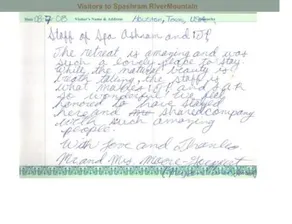 Visitors to Spashram RiverMountain
Houston, Texas, USA
Staff of Spa Ashram and
The retreat is amazing and was
such a lovely place to stay.
While the natural beauty is
breath taking, the staff is
what makes
so wonderful. We feel
honored to have stayed
here and shared company
with such amazing
people.
With Love and Thanks
Mr and Mrs